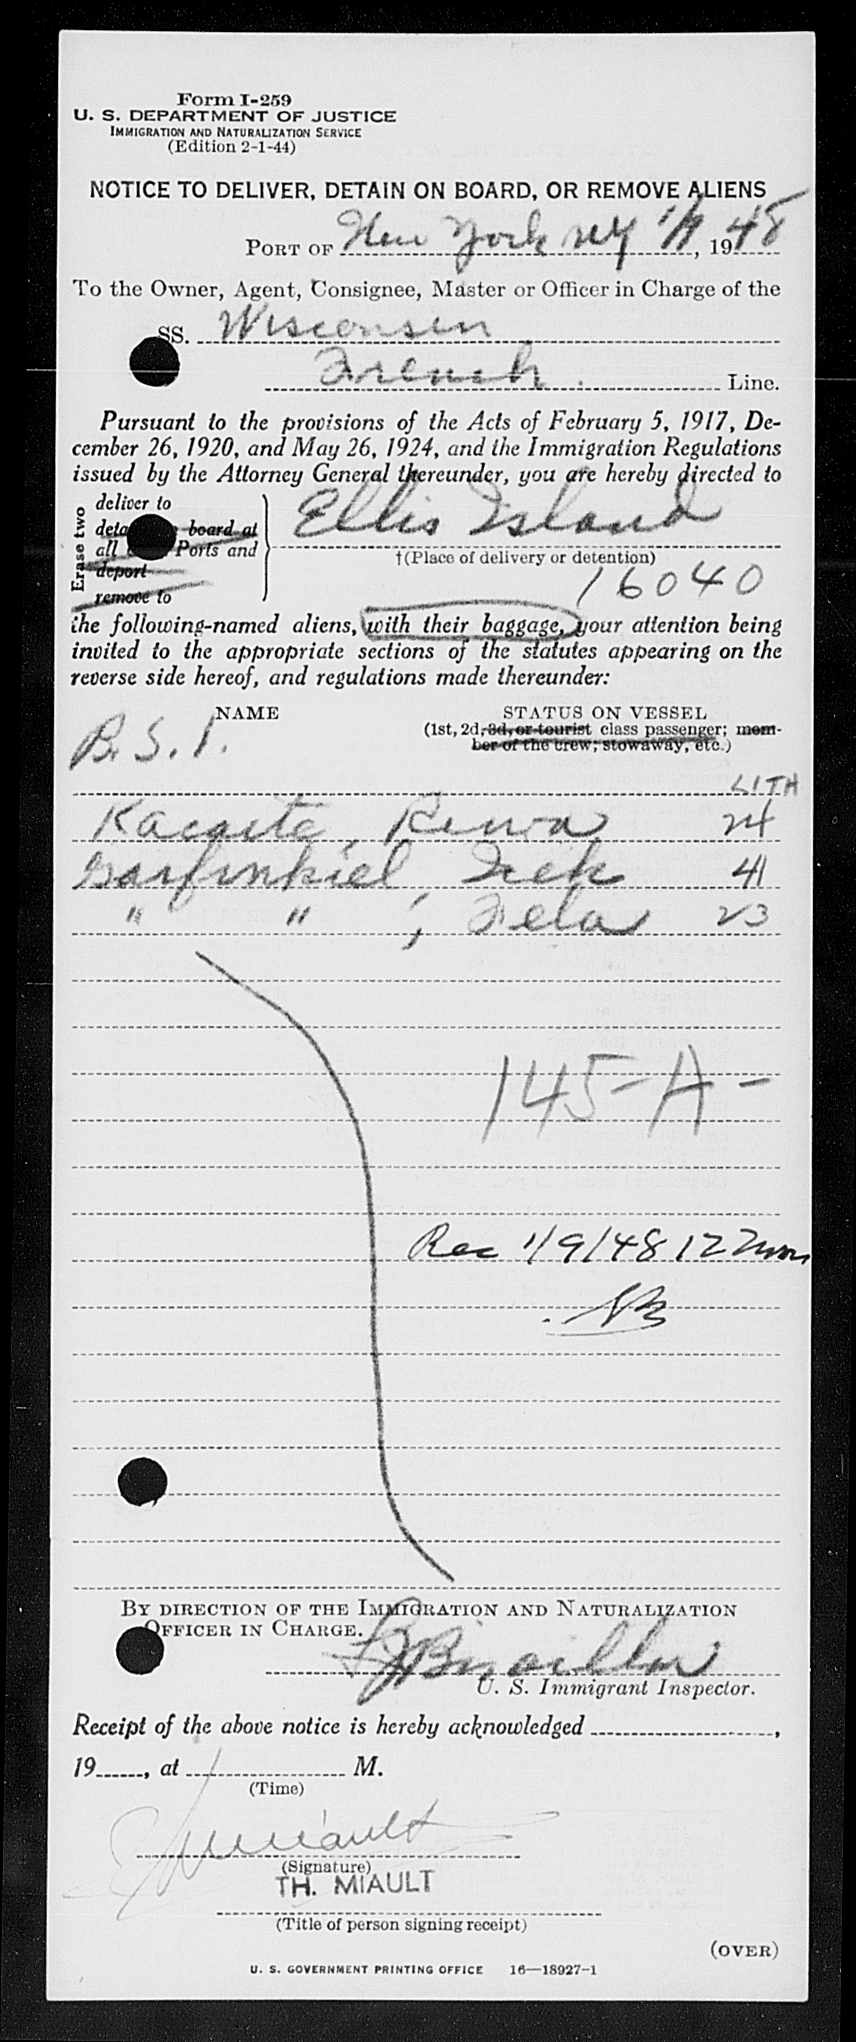 Form I-259
U. S. DEPARTMENT OF JUSTICE
IMMIGRATION AND NATURALIZATION SERVICE
(Edition 2-1-44)
NOTICE TO DELIVER, DETAIN ON BOARD, OR REMOVE ALIENS
PORT OF New York NY 1/9, 1948
To the Owner, Agent, Consignee, Master or Officer in Charge of the
SS. Wisconsin
French Line.
Pursuant to the provisions of the Acts of February 5, 1917, De-
cember 26, 1920, and May 26, 1924, and the Immigration Regulations
issued by the Attorney General thereunder, you are hereby directed to
Erase two
deliver to
deta board at
all Ports and
deport
remove to
Ellis Island
†(Place of delivery or detention)
16040
the following-named aliens, with their baggage, your attention being
invited to the appropriate sections of the statutes appearing on the
reverse side hereof, and regulations made thereunder:
NAME STATUS ON VESSEL
(1st, 2d, 3d, or tourist class passenger; mem-
ber of the crew; stowaway, etc.)
B.S.I.
LITH
24
Garfinkiel, Icek 41
" " , Fela 23
145-A-
Rec 1/9/48 12 Noon
BY DIRECTION OF THE IMMIGRATION AND NATURALIZATION
OFFICER IN CHARGE.
U. S. Immigrant Inspector.
Receipt of the above notice is hereby acknowledged ,
19 , at M.
(Time)
Miault
(Signature)
TH. MIAULT
(Title of person signing receipt)
(OVER)
U. S. GOVERNMENT PRINTING OFFICE 16—18927-1